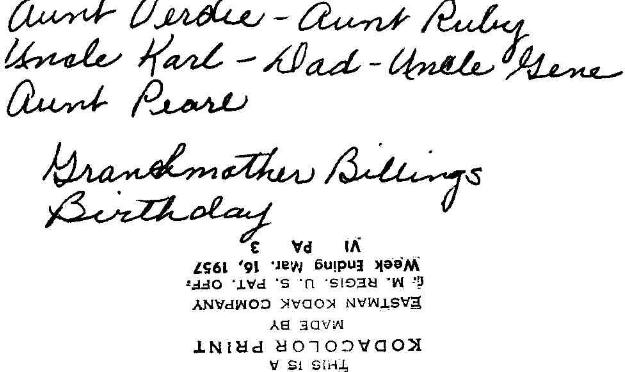 Aunt Verdie - Aunt Ruby
Uncle Karl - Dad - Uncle Gene
Aunt Pearl
Grandmother Billings
Birthday
THIS IS A
KODACOLOR PRINT
MADE BY
EASTMAN KODAK COMPANY
T. M. REGIS. U. S. PAT. OFF.
Week Ending Mar. 16, 1957
VI PA 3